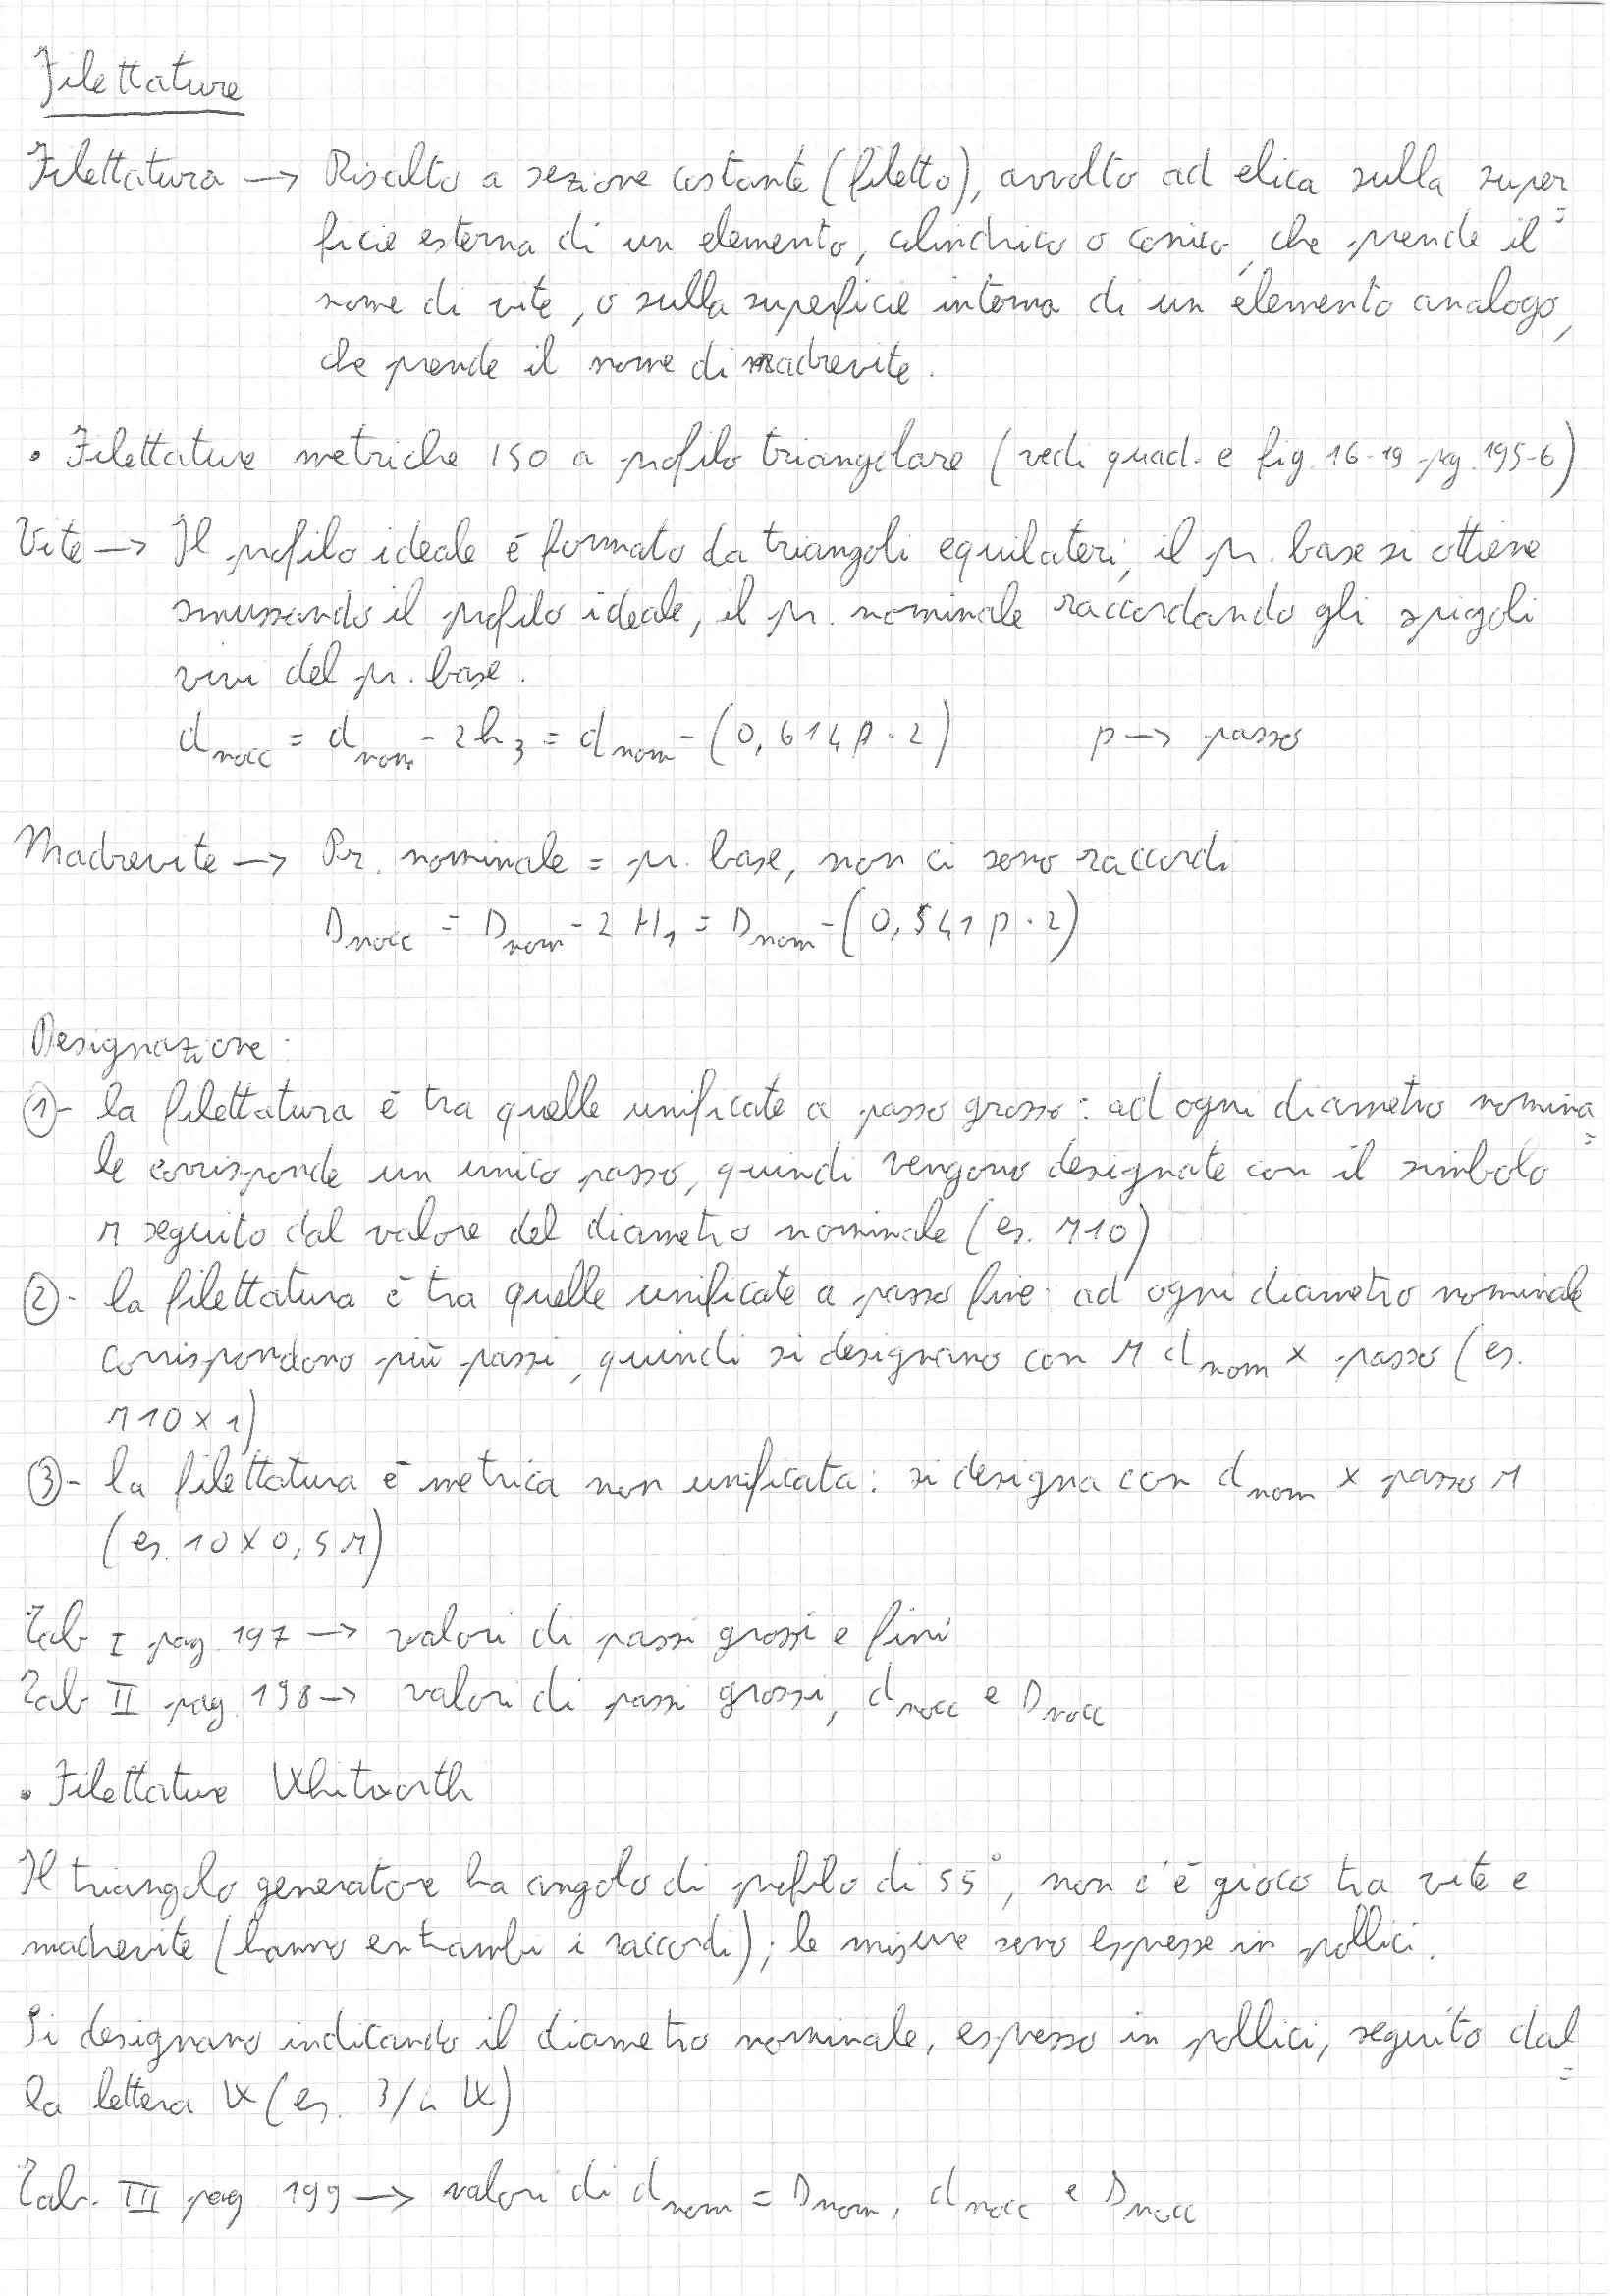 Filettature
Filettatura → Risalto a sezione costante (filetto), avvolto ad elica sulla super=
ficie esterna di un elemento, cilindrico o conico, che prende il
nome di vite, o sulla superficie interna di un elemento analogo,
che prende il nome di madrevite.
• Filettature metriche ISO a profilo triangolare (vedi quad. e fig. 16-19 pg. 195-6)
Vite → Il profilo ideale è formato da triangoli equilateri, il pr. base si ottiene
smussando il profilo ideale, il pr. nominale raccordando gli spigoli
vivi del pr. base.
d_nocc = d_nom - 2h_3 = d_nom - (0,614p · 2) p → passo
Madrevite → Pr. nominale = pr. base, non ci sono raccordi
D_nocc = D_nom - 2H_1 = D_nom - (0,541p · 2)
Designazione:
①- la filettatura è tra quelle unificate a passo grosso: ad ogni diametro nomina=
le corrisponde un unico passo, quindi vengono designate con il simbolo
M seguito dal valore del diametro nominale (es. M10)
②- la filettatura è tra quelle unificate a passo fine: ad ogni diametro nominale
corrispondono più passi, quindi si designano con M d_nom × passo (es.
M10×1)
③- la filettatura è metrica non unificata: si designa con d_nom × passo M
(es. 10×0,5M)
Tab I pag 197 → valori di passi grossi e fini
Tab II pag. 198 → valori di passi grossi, d_nocc e D_nocc
• Filettature Whitworth
Il triangolo generatore ha angolo di profilo di 55°, non c'è gioco tra vite e
madrevite (hanno entrambi i raccordi); le misure sono espresse in pollici.
Si designano indicando il diametro nominale, espresso in pollici, seguito dal=
la lettera W (es. 3/4 W)
Tab. III pag 199 → valori di d_nom = D_nom, d_nocc e D_nocc